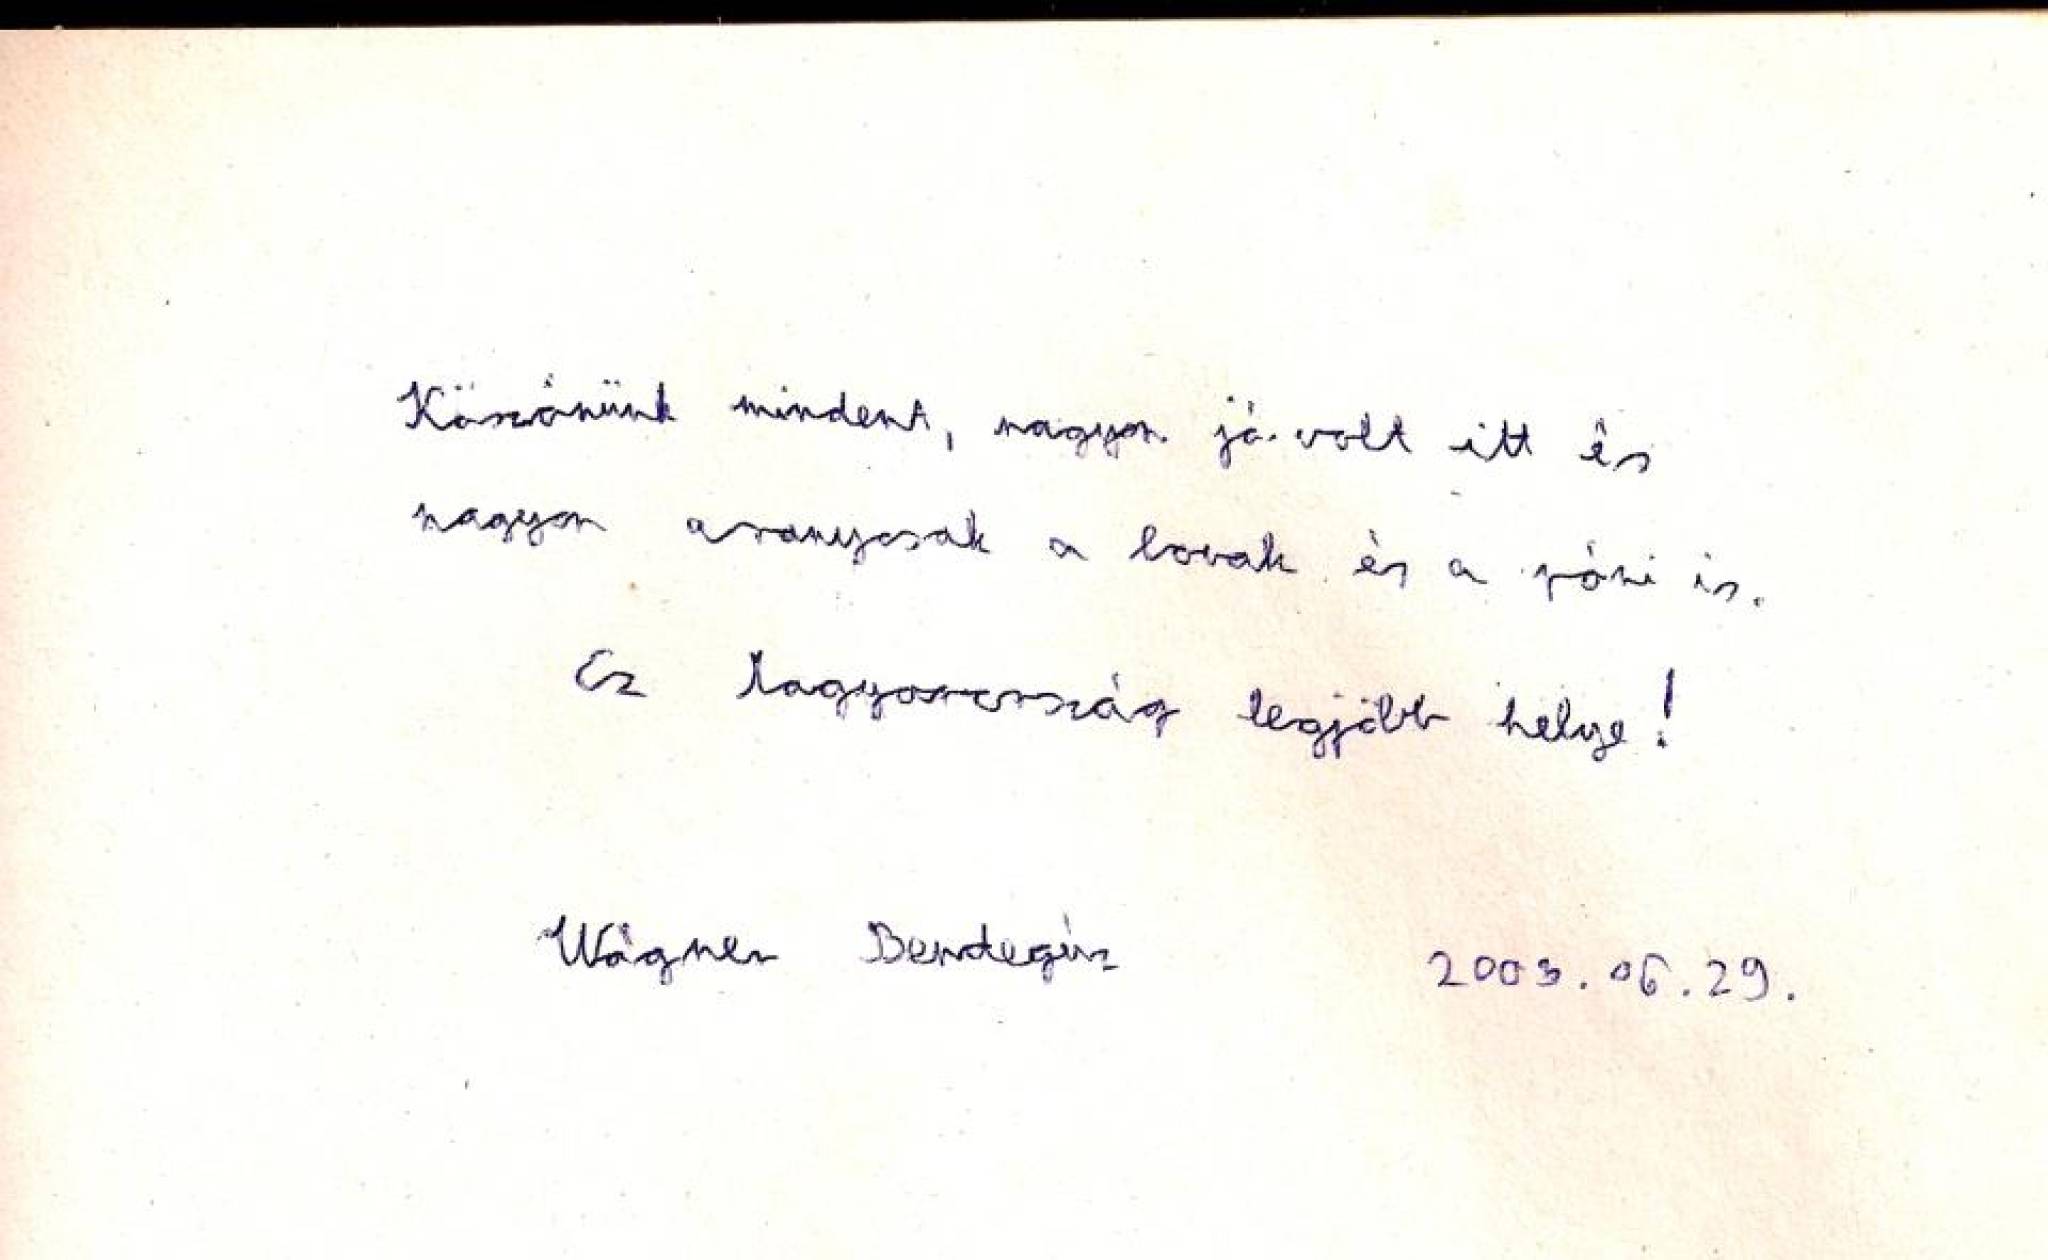 Köszönünk mindent, nagyon jó volt itt és
nagyon aranyosak a lovak és a póni is.
Ez Magyarország legjobb helye!
Wágner Bendegúz 2003.06.29.